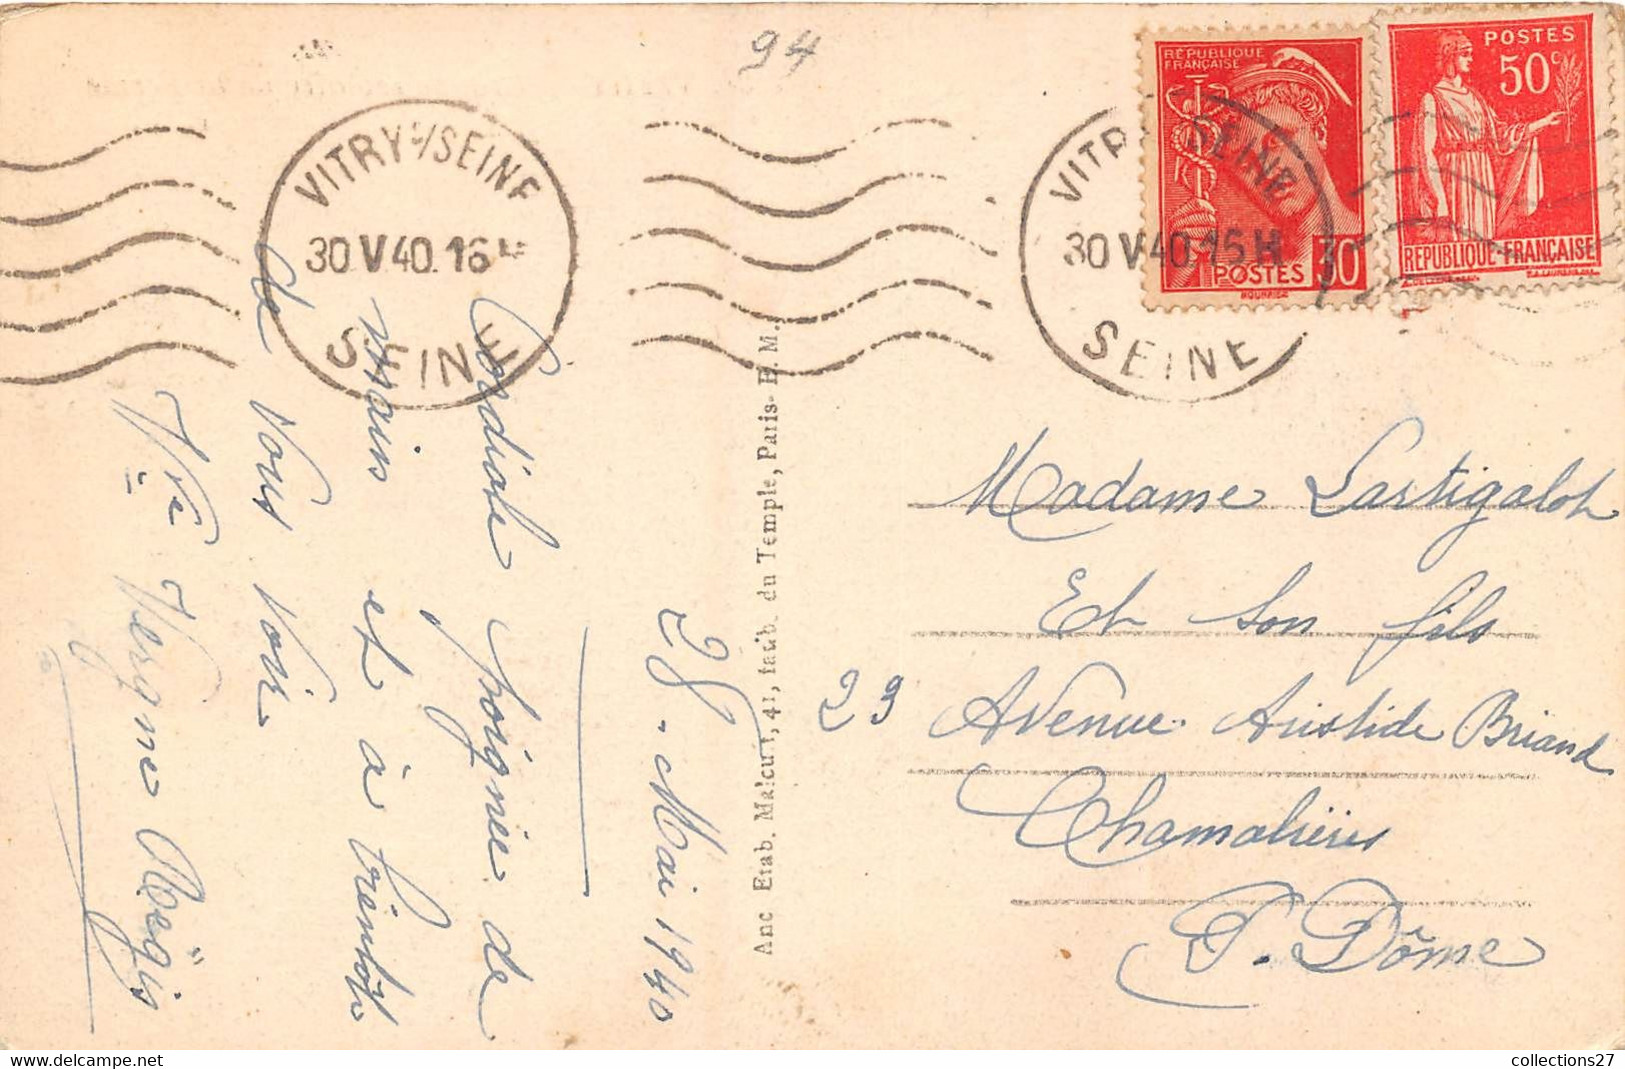 94
VITRY S/SEINE
30 V 40. 16 H
SEINE
VITRY SEINE
30 V 40. 16 H
SEINE
RÉPUBLIQUE
FRANÇAISE
POSTES
30
POSTES
50c
RÉPUBLIQUE-FRANÇAISE
28. Mai 1940
Cordiale poignée de
main et à bientôt
de Vous Voir
Vve Vergne Régis
Anc Etab. Malcuit, 41, faub. du Temple, Paris- H. M.
Madame Lastigaloh
Et son fils
29 Avenue Aristide Briand
Chamalières
P. Dôme
collections27